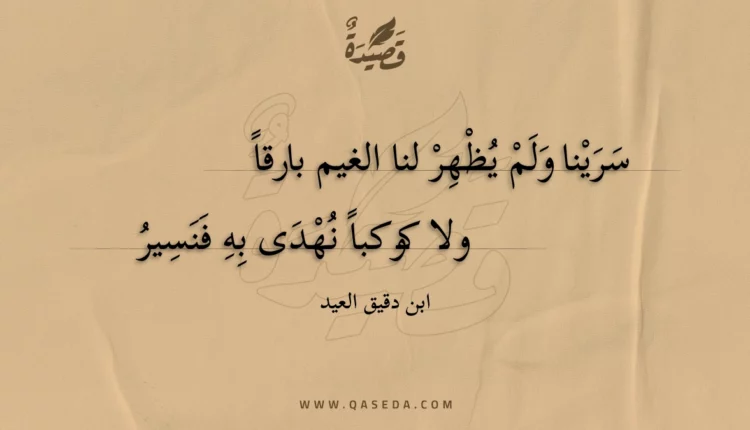 قَصِيدَةٌ
سَرَيْنا وَلَمْ يُظْهِرْ لنا الغيم بارقاً
ولا كوكباً نُهْدَى بِهِ فَنَسِيرُ
ابن دقيق العيد
WWW.QASEDA.COM